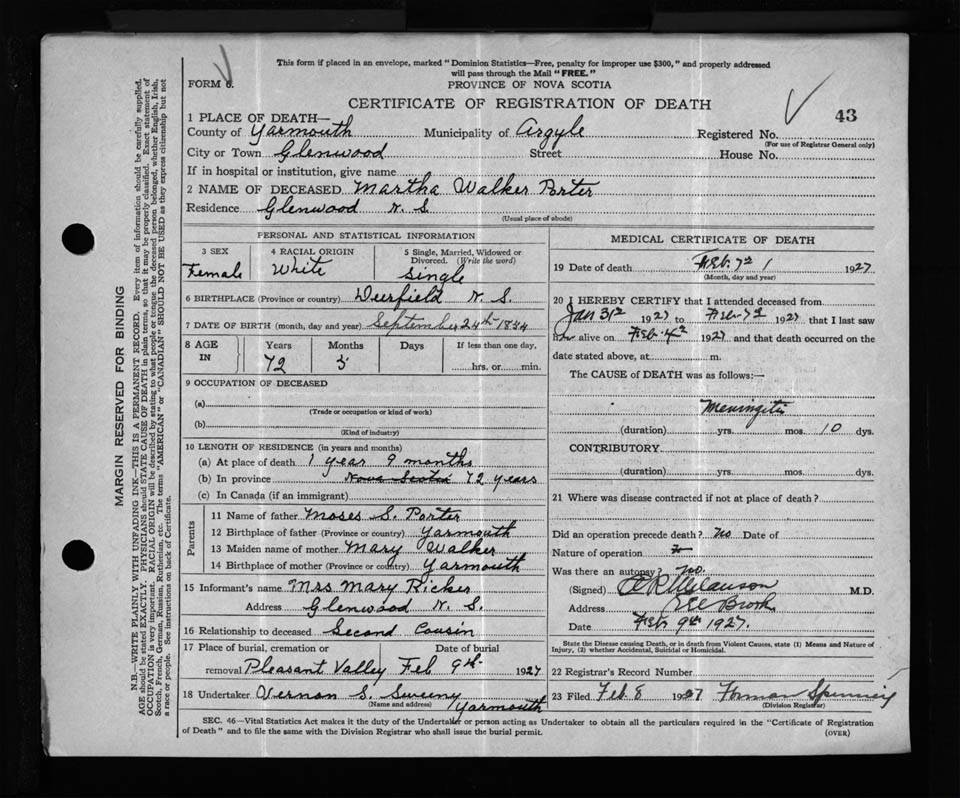 This form if placed in an envelope, marked "Dominion Statistics—Free, penalty for improper use $300," and properly addressed
will pass through the Mail "FREE."
FORM 6.
PROVINCE OF NOVA SCOTIA
CERTIFICATE OF REGISTRATION OF DEATH
43
1 PLACE OF DEATH—
County of Yarmouth Municipality of Argyle Registered No.
(For use of Registrar General only)
City or Town Glenwood Street House No.
If in hospital or institution, give name
2 NAME OF DECEASED Martha Walker Porter
Residence Glenwood N. S.
(Usual place of abode)
PERSONAL AND STATISTICAL INFORMATION
3 SEX 4 RACIAL ORIGIN 5 Single, Married, Widowed or
Divorced. (Write the word)
Female White Single
6 BIRTHPLACE (Province or country) Deerfield N. S.
7 DATE OF BIRTH (month, day and year) September 24th 1854
8 AGE IN Years Months Days If less than one day,
72 3 hrs. or min.
9 OCCUPATION OF DECEASED
(a)
(Trade or occupation or kind of work)
(b)
(Kind of industry)
10 LENGTH OF RESIDENCE (in years and months)
(a) At place of death 1 year 9 months
(b) In province Nova Scotia 72 years
(c) In Canada (if an immigrant)
Parents
11 Name of father Moses S. Porter
12 Birthplace of father (Province or country) Yarmouth
13 Maiden name of mother Mary Walker
14 Birthplace of mother (Province or country) Yarmouth
15 Informant Mrs Mary Ricker
Address Glenwood N. S.
16 Relationship to deceased Second Cousin
17 Place of burial, cremation or Date of burial
removal Pleasant Valley Feb 9th 1927
18 Undertaker Vernon S. Sweeny
(Name and address) Yarmouth
MEDICAL CERTIFICATE OF DEATH
19 Date of death Feb. 7th 1927
(Month, day and year)
20 I HEREBY CERTIFY that I attended deceased from
Jan 31st 1927 to Feb 7th 1927 that I last saw
h alive on Feb. 1927 and that death occurred on the
date stated above, at m.
The CAUSE of DEATH was as follows:—
Meningitis
(duration) yrs. mos. 10 dys.
CONTRIBUTORY
(duration) yrs. mos. dys.
21 Where was disease contracted if not at place of death?
Did an operation precede death? No Date of
Nature of operation
Was there an autopsy? No.
(Signed) M.D.
Address Brook
Date Feb 9th 1927.
State the Disease causing Death, or in death from Violent Causes, state (1) Means and Nature of
Injury, (2) whether Accidental, Suicidal or Homicidal.
22 Registrar's Record Number
23 Filed Feb. 8 1927 Forman Spinney
(Division Registrar)
SEC. 46—Vital Statistics Act makes it the duty of the Undertaker or person acting as Undertaker to obtain all the particulars required in the "Certificate of Registration
of Death" and to file the same with the Division Registrar who shall issue the burial permit.
(OVER)
MARGIN RESERVED FOR BINDING
N.B.—WRITE PLAINLY WITH UNFADING INK—THIS IS A PERMANENT RECORD. Every item of information should be carefully supplied.
AGE should be stated EXACTLY. PHYSICIANS should STATE CAUSE OF DEATH in plain terms, so that it may be properly classified. Exact statement of
OCCUPATION is very important. RACIAL ORIGIN will be described by stating to what people or tongue the deceased person belonged, whether English, Irish,
Scotch, French, German, Russian, Ruthenian, etc. The terms "AMERICAN" or "CANADIAN" SHOULD NOT BE USED as they express citizenship but not
a race or people. See instructions on back of Certificate.